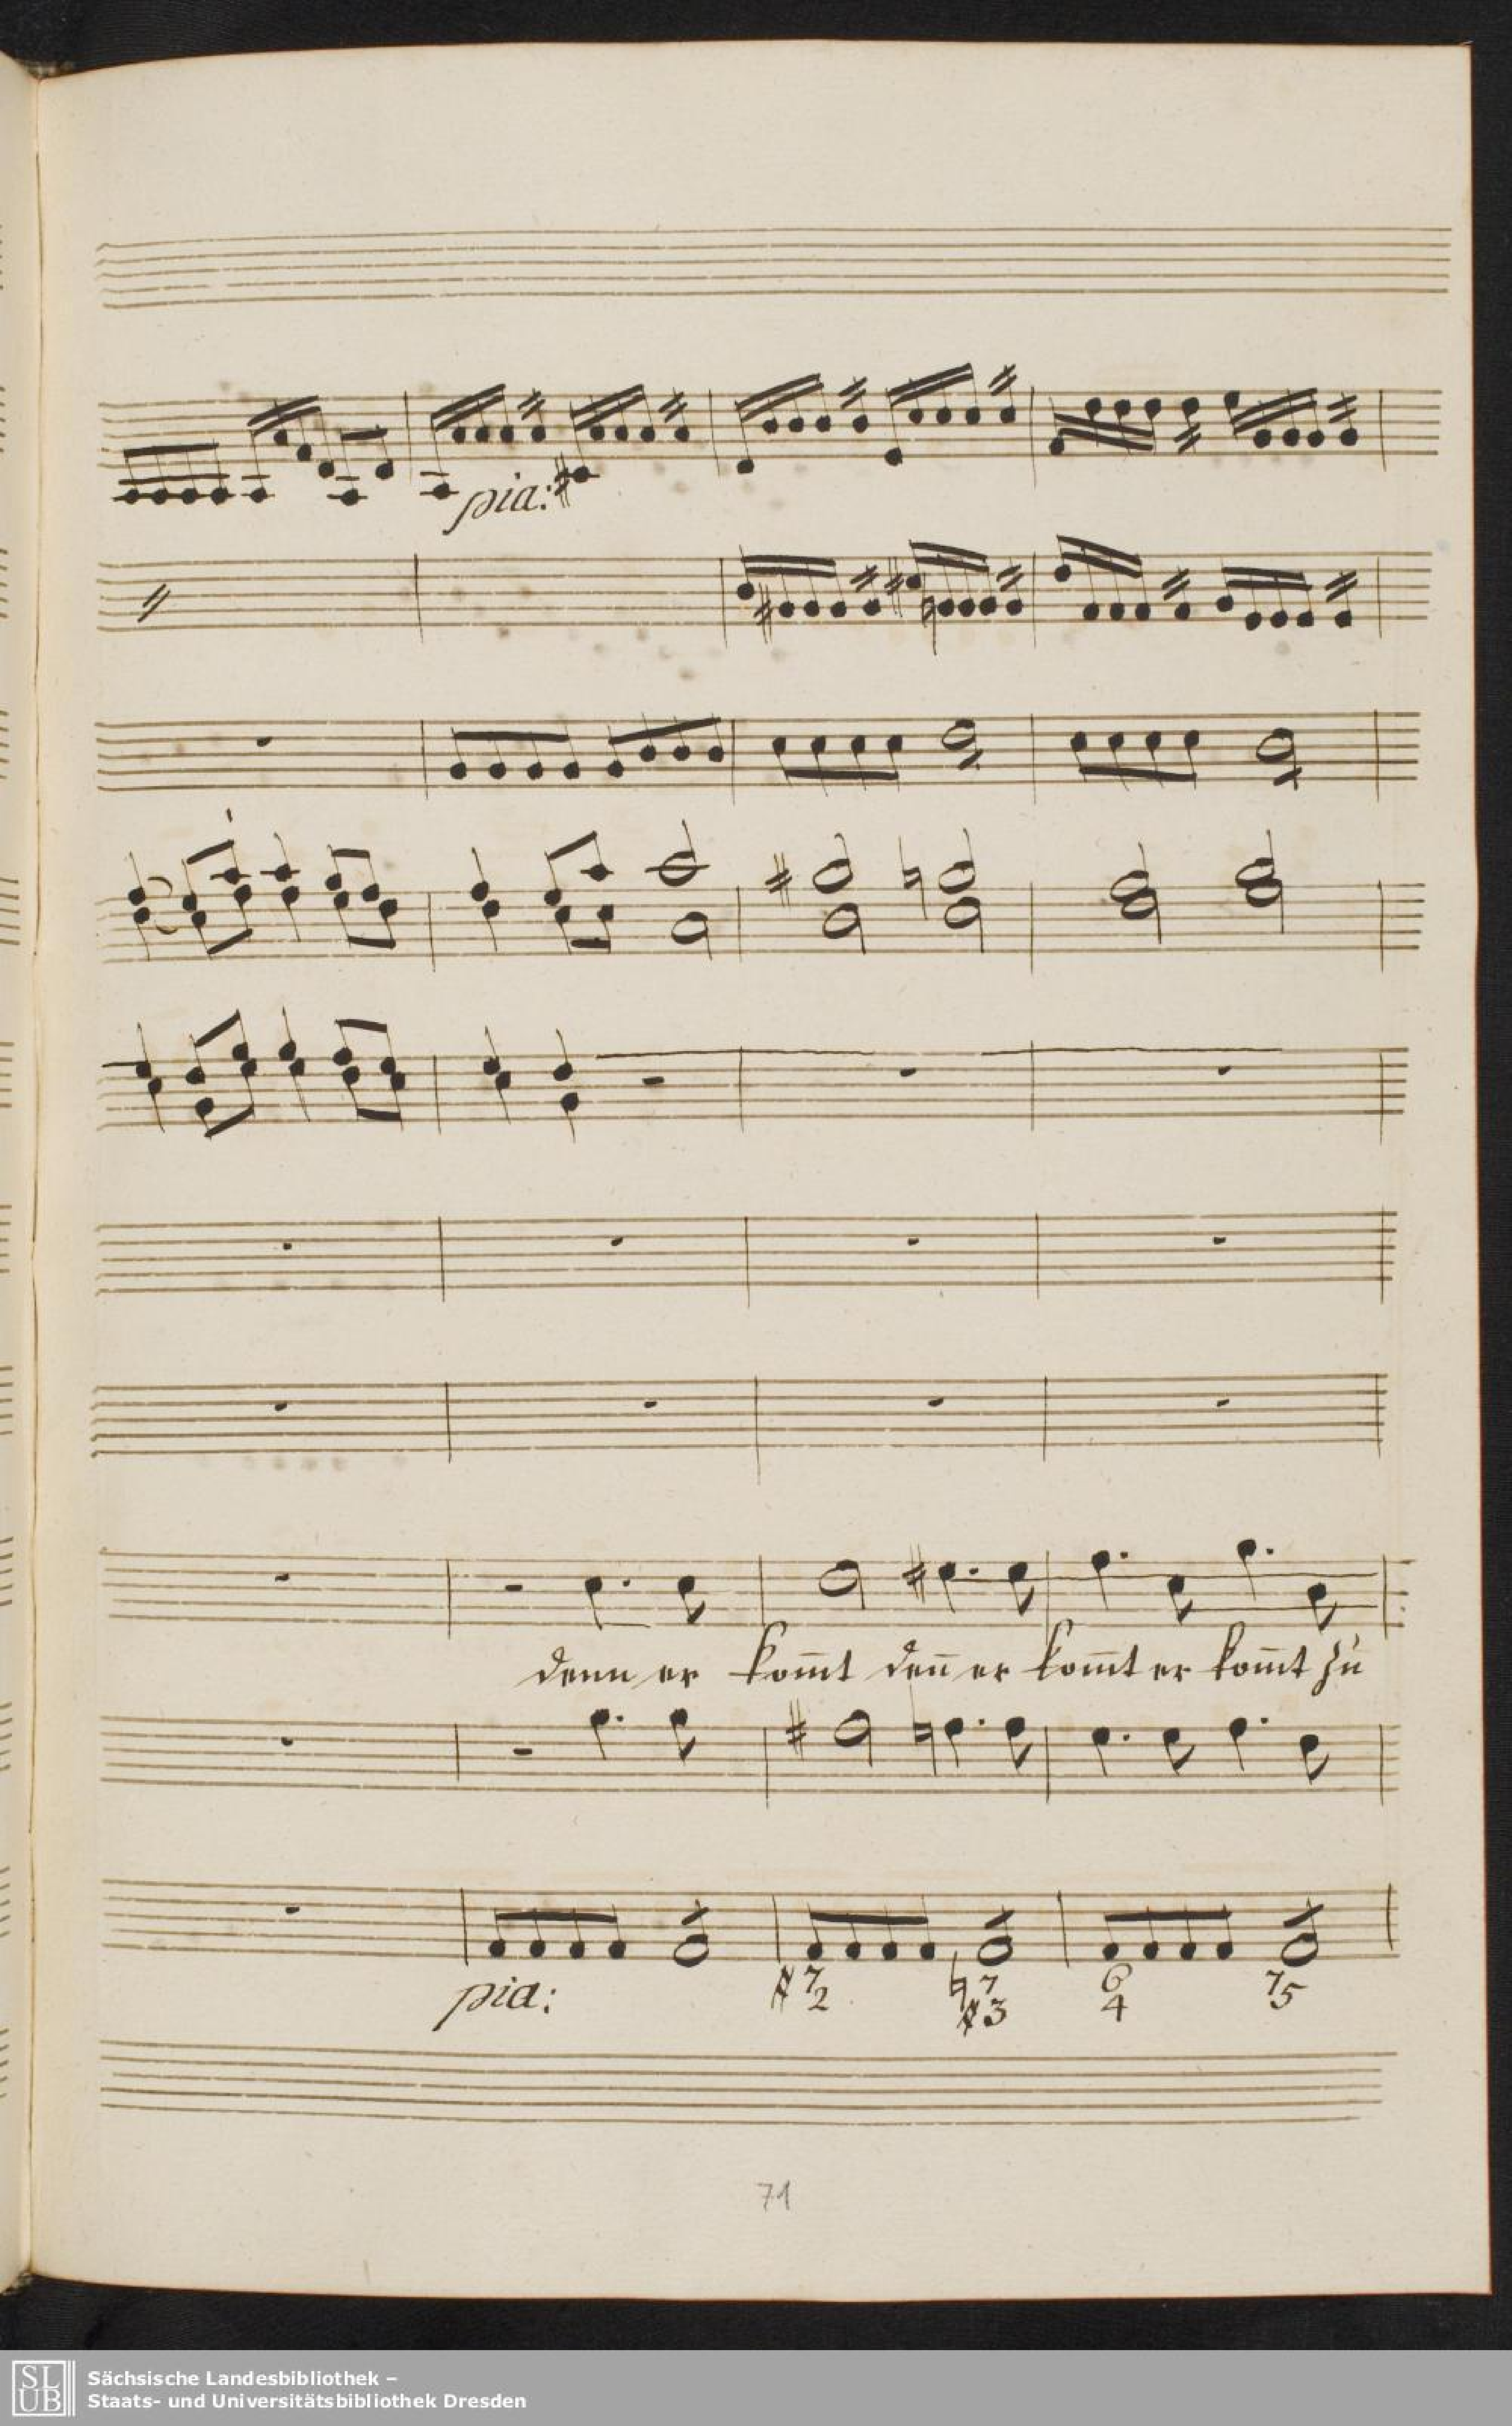 pia:
denn er kom̅t den̅ er kom̅t er kom̅t zu
pia:
7 7 6 7
2 3 4 5
71
SLUB
Sächsische Landesbibliothek –
Staats- und Universitätsbibliothek Dresden